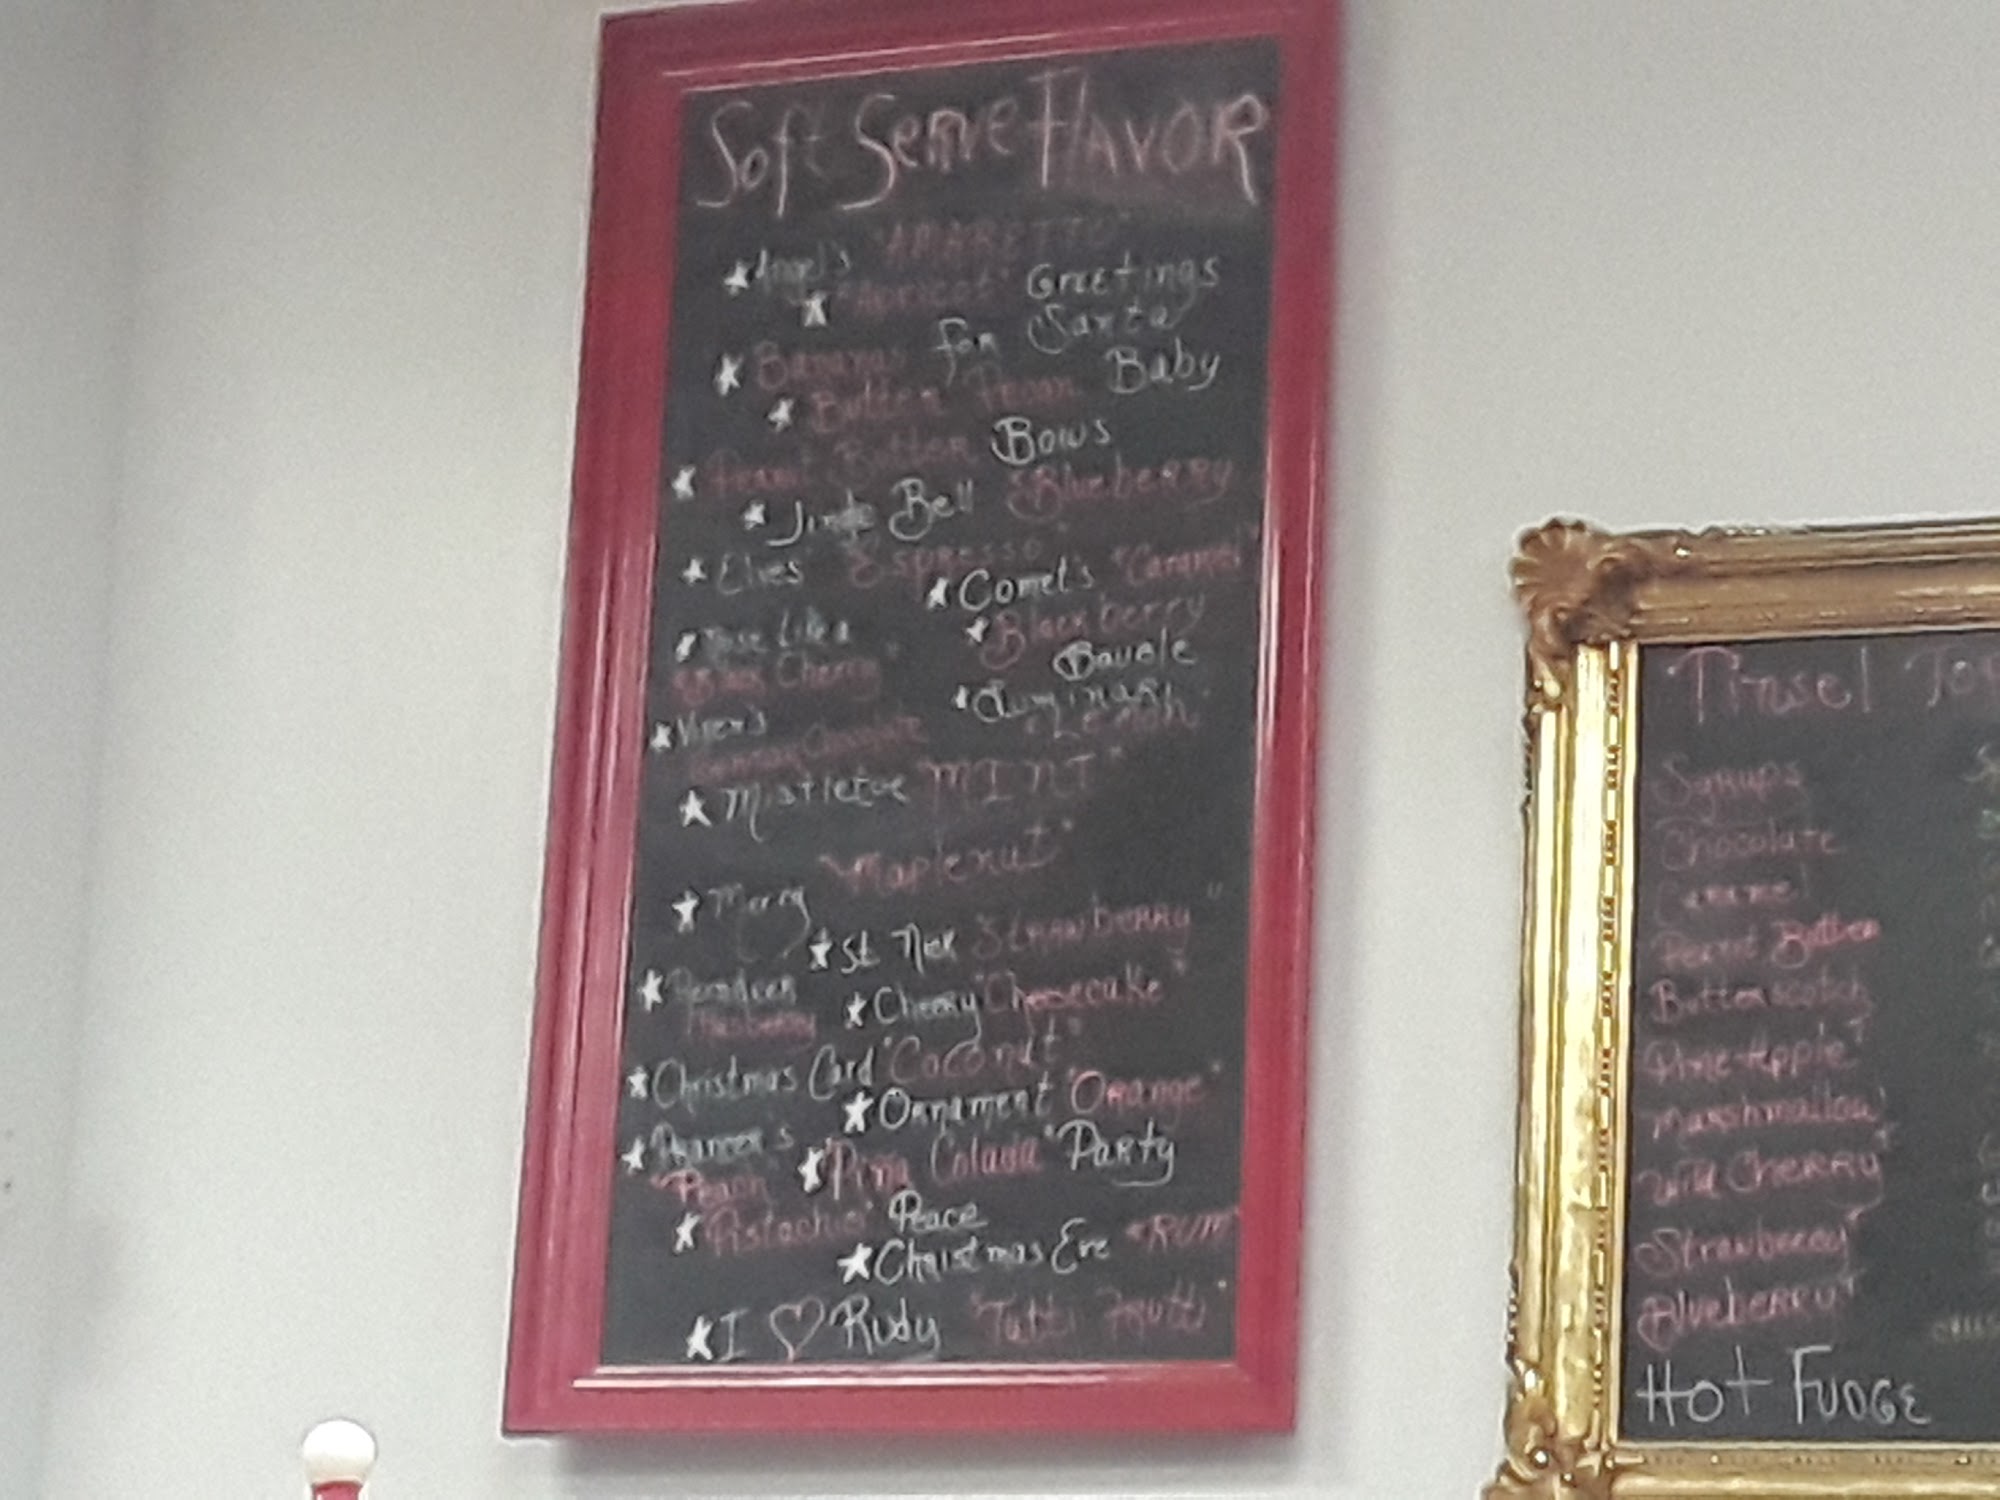 Soft Serve FLAVOR
Angel's "AMARETTO"
"Apricot" Greetings
Bananas for Santa
Baby
Butter Pecan
Peanut Butter Bows
Jingle Bell Blueberry
Elves' Espresso"
Comet's "Caramel"
Blackberry
Bauble
Nose Like a
Black Cherry"
Luminari
"Lemon"
Vixen's
Chocolate
Mistletoe MINT"
Merry "Maplenut"
St. Nick Strawberry"
Cherry "Cheesecake"
Christmas Card "Coconut"
Ornament "Orange"
Prancer's
"Peach"
"Pina Colada" Party
"Pistachio" Peace
Christmas Eve "RUM"
I ♡ Rudy "Tutti Frutti"
Tinsel
Syrups
Chocolate
Caramel
Peanut Butter
Butterscotch
Pine-Apple
Marshmallow
Wild CHERRY
Strawberry
BluebeRRy
Hot FUDGE